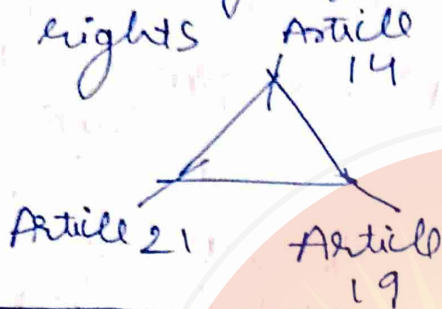 rights Article
14
Article 21 Article
19